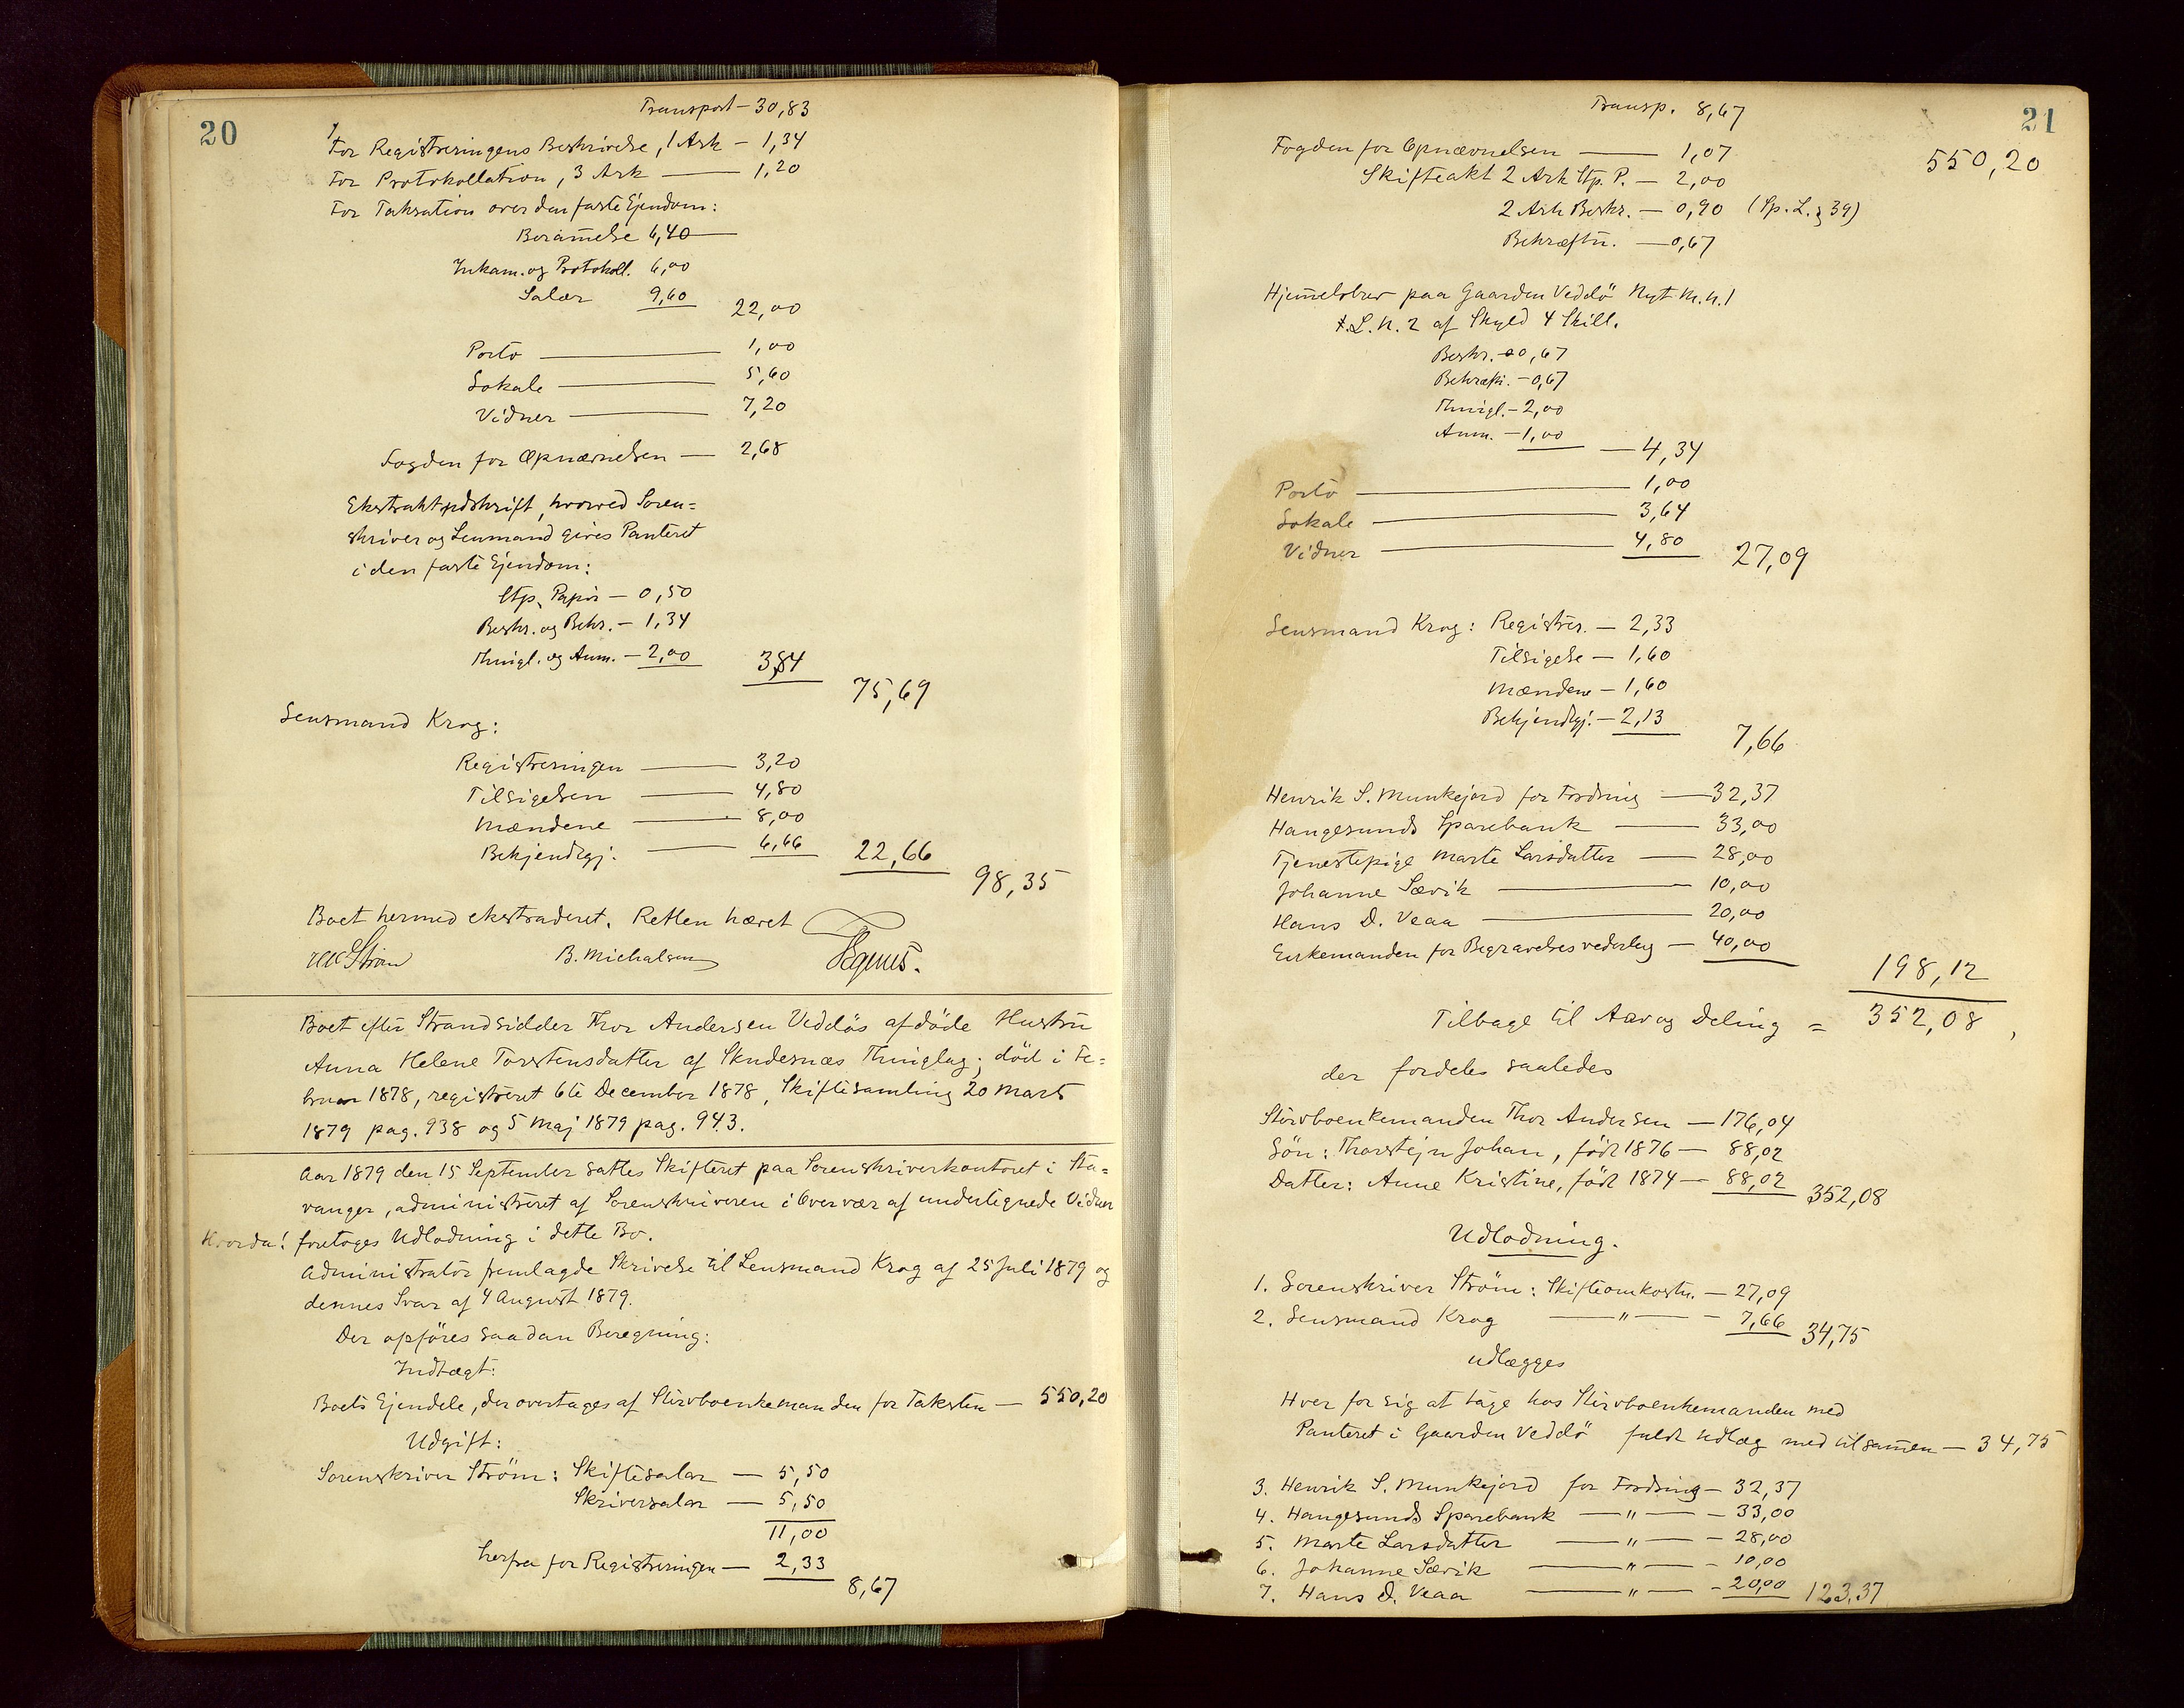 20
Transport – 30,83
For Registreringens Beskrivelse, 1 Ark – 1,34
For Protokollation, 3 Ark — 1,20
For Taksation over den faste Ejendom:
Beramelse 6,40
Inkam. og Protokoll. 6,00
Salær 9,60 22,00
Porto — 1,00
Lokale — 5,60
Vidner — 7,20
Fogden for Opnævnelsen — 2,68
Ekstraktudskrift, hvorved Soren=
skriver og Lensmand gives Panteret
i den faste Ejendom:
Stp. Papir – 0,50
Beskr. og Bekr. – 1,34
Thingl. og Anm. – 2,00 3,84
75,69
Lensmand Krog:
Registreringen — 3,20
Tilsigelsen — 4,80
Mændene — 8,00
Bekjendtgj. — 6,66 22,66
98,35
Boet hermed ekstraderet. Retten hævet
Strøm B. Michalsen
Boet efter Strandsidder Thor Andersen Veddös afdöde Hustru
Anna Helene Torstensdatter af Skudesnæs Thinglag; död i Fe=
bruar 1878, registreret 6te December 1878, Skiftesamling 20 Marts
1879 pag. 938 og 5 Maj 1879 pag. 943.
Aar 1879 den 15 September sattes Skifteret paa Sorenskriverkontoret i Sta=
vanger, administreret af Sorenskriveren i Overvær af undertegnede Vidner
Hvorda! foretoges Udlodning i dette Bo.
Administrator fremlagde Skrivelse til Lensmand Krog af 25 Juli 1879 og
dennes Svar af 4 August 1879.
Der opföres saadan Beregning:
Indtægt:
Boets Ejendele, der overtages af Stervboenkemanden for Taksten — 550,20
Udgift:
Sorenskriver Ström: Skiftesalær — 5,50
Skriversalær — 5,50
11,00
herfra for Registreringen — 2,33
8,67
21
Transp. 8,67
550,20
Fogden for Opnævnelsen — 1,07
Skifteakt 2 Ark Stp. P. – 2,00
2 Ark Beskr. – 0,90 (Sp. L. § 39)
Bekræftn. – 0,67
Hjemmelsbrev paa Gaarden Veddö Nyt M.n. 1
L.N. 2 af Skyld 4 Skill.
Beskr. – 0,67
Bekræft. – 0,67
Thingl. – 2,00
Anm. – 1,00 — 4,34
Porto — 1,00
Lokale — 3,64
Vidner — 4,80 27,09
Lensmand Krog: Registrer. – 2,33
Tilsigelse – 1,60
Mændene – 1,60
Bekjendtgj. – 2,13
7,66
Henrik S. Munkejord for Fordring — 32,37
Haugesunds Sparebank — 33,00
Tjenestepige Marte Larsdatter — 28,00
Johanne Sævik — 10,00
Hans D. Veaa — 20,00
Enkemanden for Begravelsesvederlag – 40,00
198,12
Tilbage til Arv og Deling = 352,08
der fordeles saaledes
Stervboenkemanden Thor Andersen — 176,04
Sön: Thorstejn Johan, född 1876 — 88,02
Datter: Anne Kristine, född 1874 – 88,02 352,08
Udlodning.
1. Sorenskriver Ström: Skifteomkostn. – 27,09
2. Lensmand Krog — " — – 7,66 34,75
udlægges
Hver for sig at tage hos Stervboenkemanden med
Panteret i Gaarden Veddö fuldt Udlæg med tilsammen — 34,75
3. Henrik S. Munkejord for Fordring – 32,37
4. Haugesunds Sparebank — " — – 33,00
5. Marte Larsdatter — " — – 28,00
6. Johanne Sævik — " — – 10,00
7. Hans D. Veaa — " — – 20,00 123,37